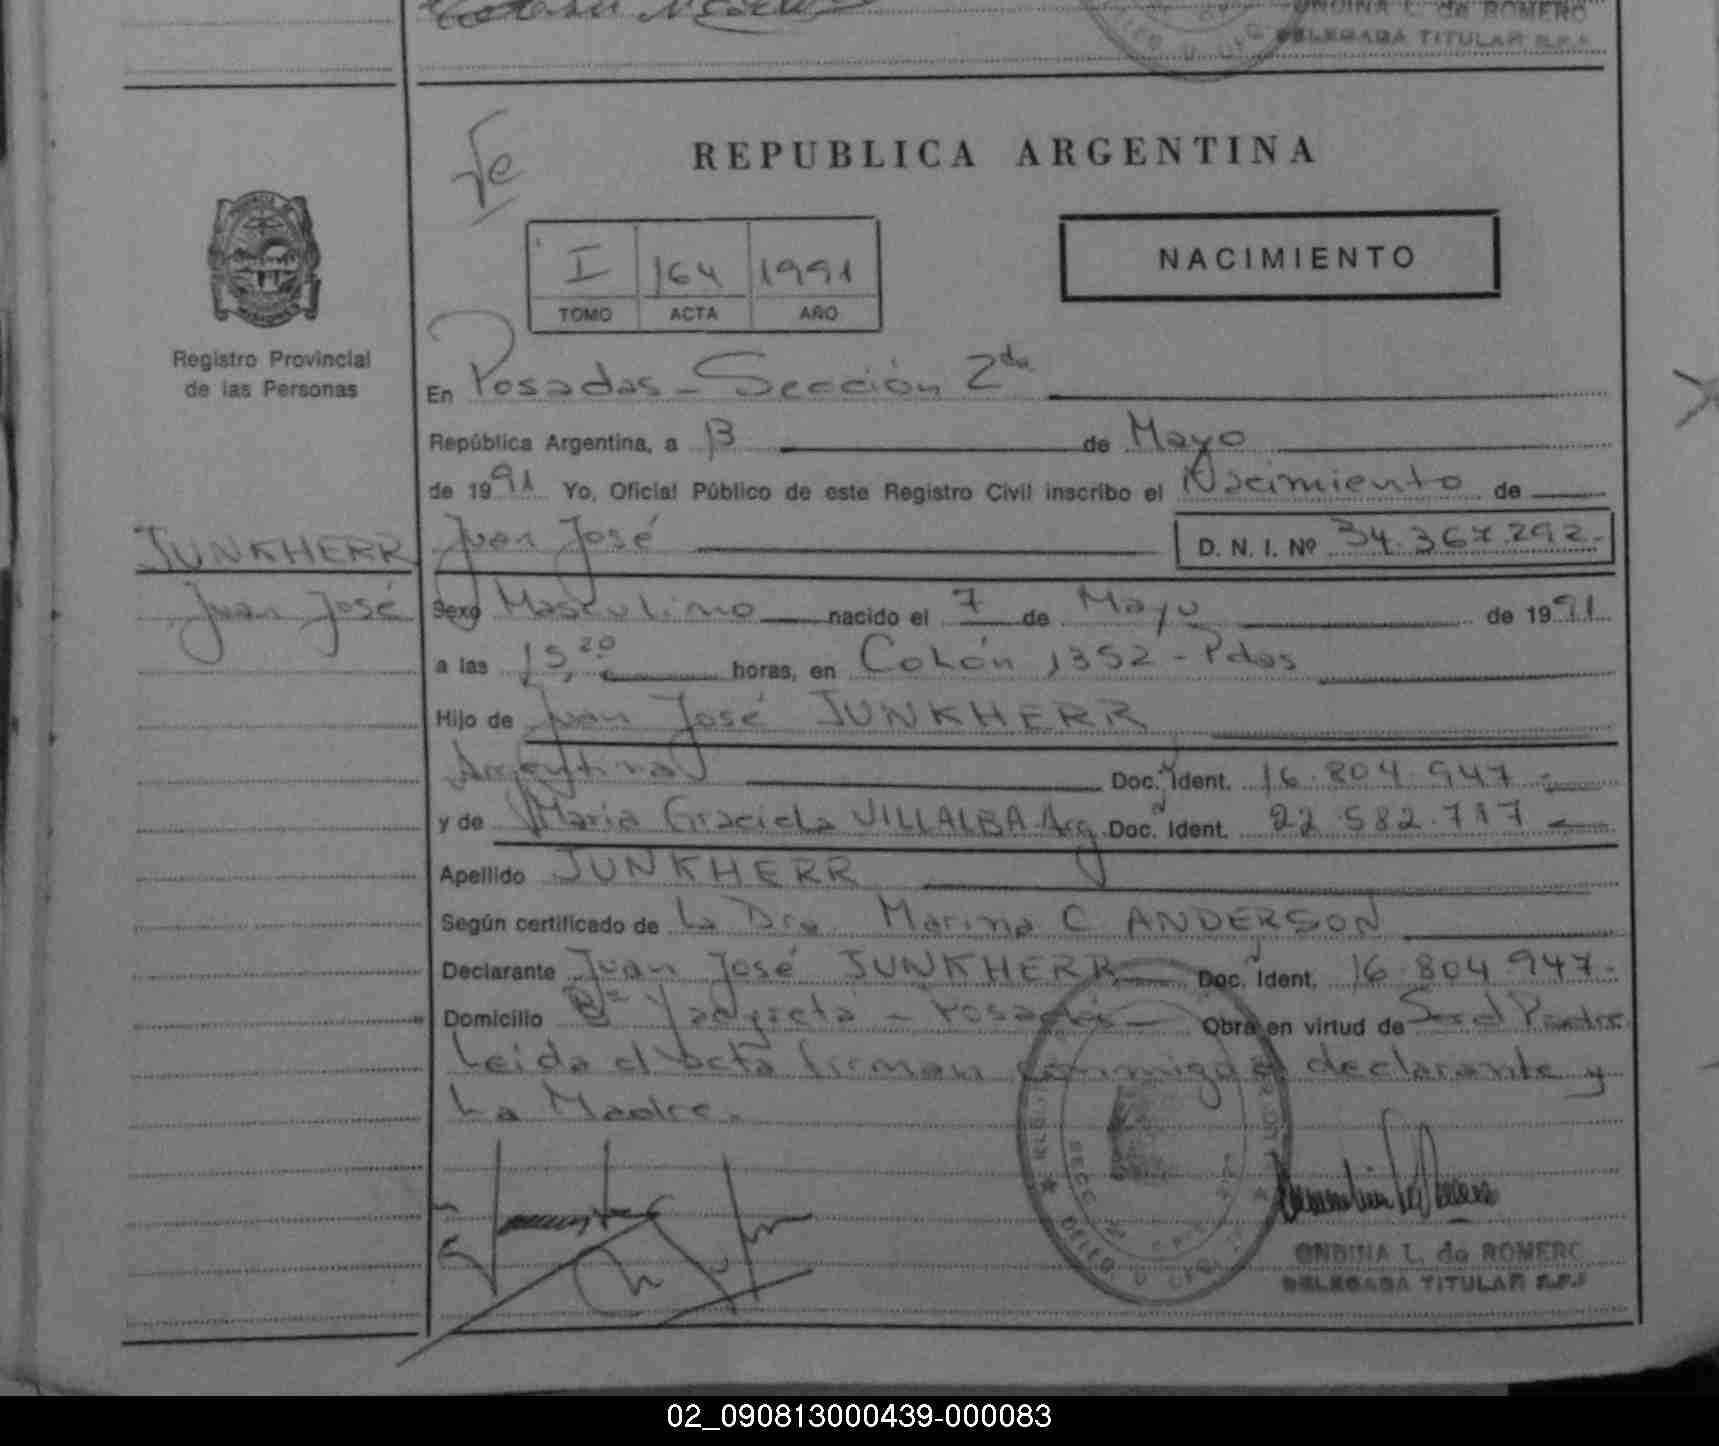 ONDINA L. de ROMERO
DELEGADA TITULAR R.P.P.
REPUBLICA ARGENTINA
NACIMIENTO
I 164 1991
TOMO ACTA AÑO
Registro Provincial
de las Personas
En Posadas - Sección 2da
República Argentina, a 13 de Mayo
de 1991 Yo, Oficial Público de este Registro Civil inscribo el Nacimiento de
JUNKHERR Juan José D. N. I. Nº 34.367.292.-
Juan José Sexo Masculino nacido el 7 de Mayo de 1991
a las 15,20 horas, en Colón 1352 - Pdas
Hijo de Juan José JUNKHERR
Argentina Doc. Ident. 16.804.947.-
y de María Graciela VILLALBA Arg. Doc. Ident. 22.582.717
Apellido JUNKHERR
Según certificado de La Dra. Marina C ANDERSON
Declarante Juan José JUNKHERR Doc. Ident. 16.804.947.-
Domicilio Bº Yacyretá - Posadas - Obra en virtud de Ser el Padre
Leida el acta firman conmigo el declarante y
La Madre.
ONDINA L. de ROMERO
DELEGADA TITULAR R.P.P.
02_090813000439-000083